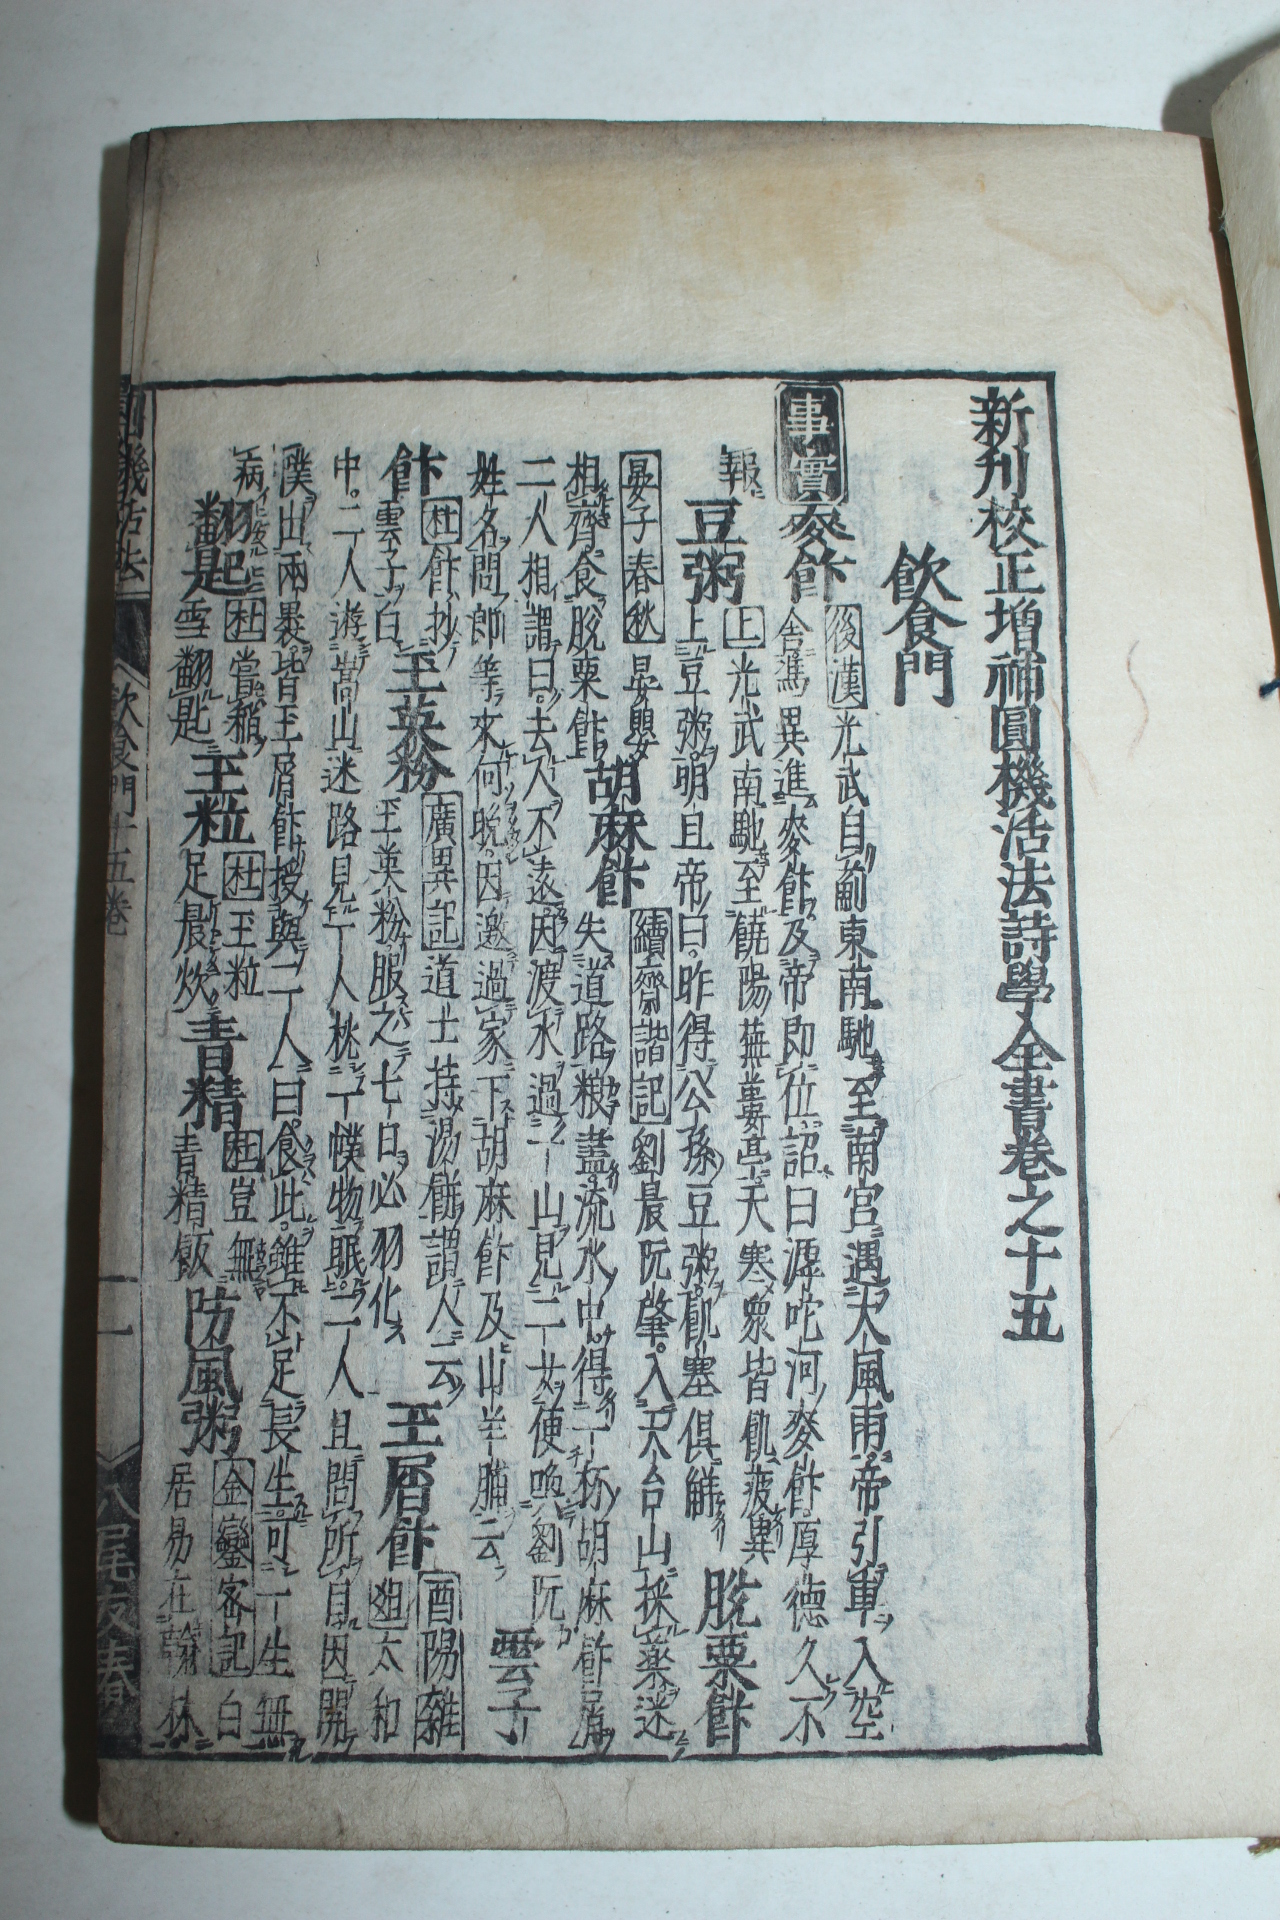 新刊校正增補圓機活法詩學全書卷之十五
飲食門
事實
麥飰
後漢光武自薊東南馳至南宮遇大風雨帝引車入空
舍馮異進麥飰及帝即位詔曰滹沱河麥飰厚德久不
報
豆粥
上光武南馳至饒陽蕪蔞亭天寒衆皆飢疲異
上豆粥明旦帝曰昨得公孫豆粥飢寒俱解
脫粟飰
晏子春秋晏嬰
相齊食脫粟飰
胡麻飰
續齊諧記劉晨阮肇入天台山採藥迷
失道路粮盡流水中得一杯胡麻飰屑
二人相謂曰去人不遠因渡水過一山見二女便喚劉阮
姓名問郎等來何晚因邀過家下胡麻飰及山羊脯云
雲子
飰
杜飰抄
雲子白
玉英粉
廣異記道士持湯餅謂人云
玉英粉服之七日必羽化
玉屑飰
酉陽雜
俎太和
中二人遊嵩山迷路見一人枕一幞物眠二人且問所自因開
幞出兩裹皆玉屑飰授與二人曰食此雖不足長生可一生無
病
翻匙
杜嘗稲
雪翻匙
玉粒
杜玉粒
足晨炊
青精
杜豈無
青精飯
防風粥
金鑾密記白
居易在翰林
圓機活法
飲食門十五卷
一
八尾友春